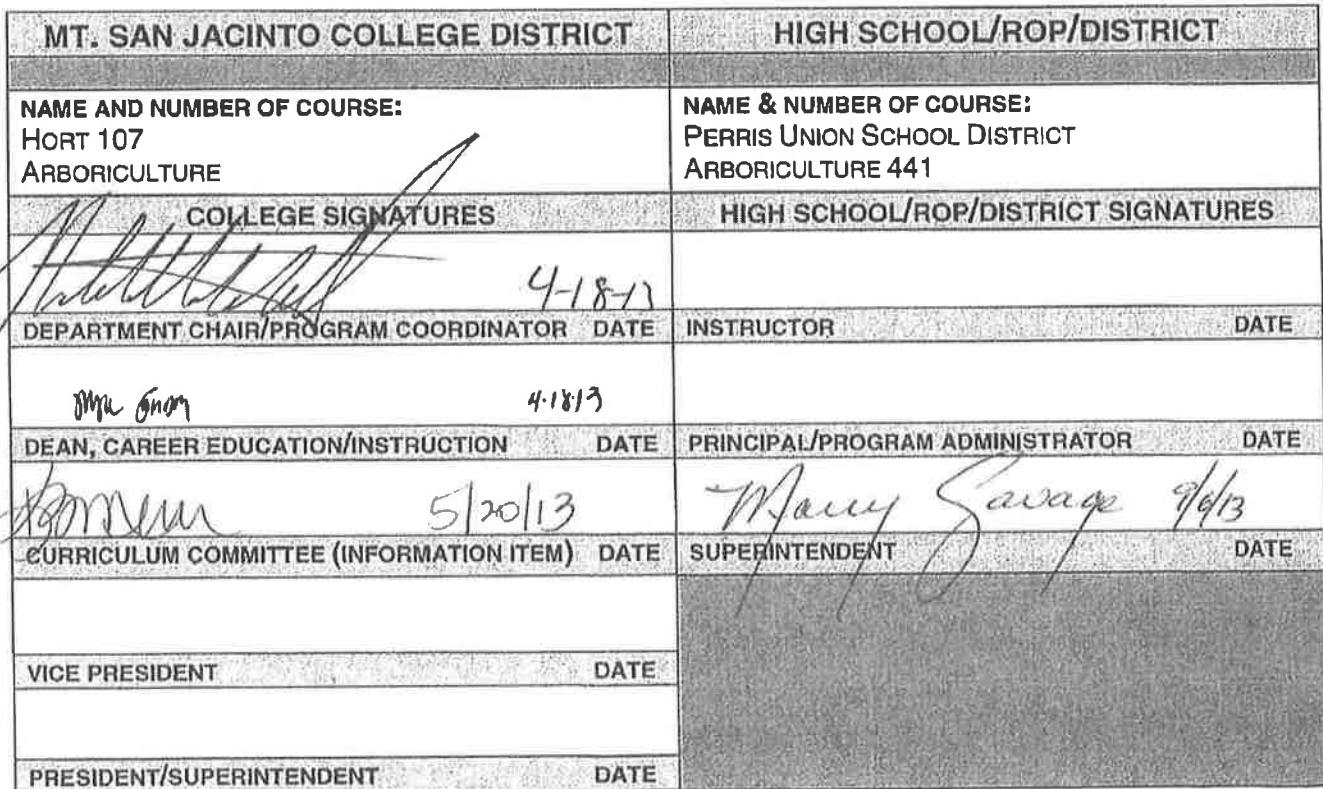 MT. SAN JACINTO COLLEGE DISTRICT
HIGH SCHOOL/ROP/DISTRICT
NAME AND NUMBER OF COURSE:
HORT 107
ARBORICULTURE
NAME & NUMBER OF COURSE:
PERRIS UNION SCHOOL DISTRICT
ARBORICULTURE 441
COLLEGE SIGNATURES
HIGH SCHOOL/ROP/DISTRICT SIGNATURES
4-18-13
DEPARTMENT CHAIR/PROGRAM COORDINATOR DATE
INSTRUCTOR DATE
4.18.13
DEAN, CAREER EDUCATION/INSTRUCTION DATE
PRINCIPAL/PROGRAM ADMINISTRATOR DATE
5/20/13
Savage 9/6/13
CURRICULUM COMMITTEE (INFORMATION ITEM) DATE
SUPERINTENDENT DATE
VICE PRESIDENT DATE
PRESIDENT/SUPERINTENDENT DATE